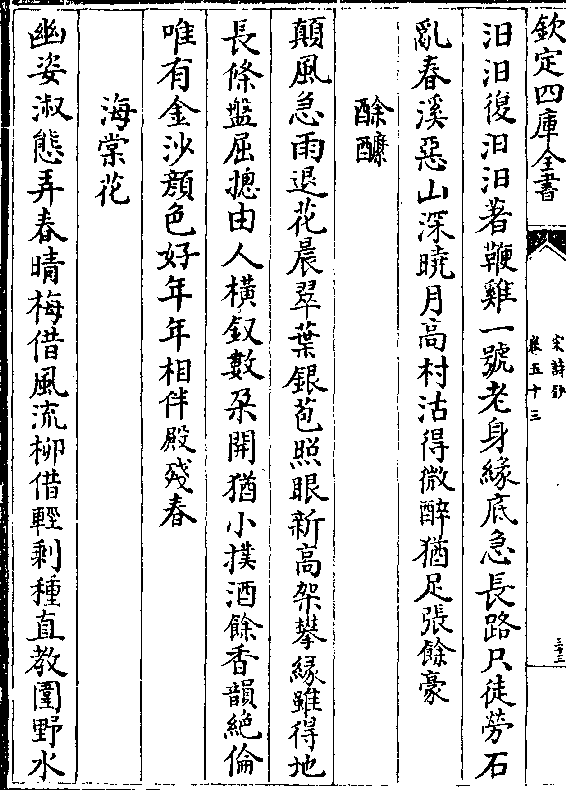 欽定四庫全書
宋詩鈔
卷五十三
三十三
汨汨復汨汨著鞭雞一號老身緣底急長路只徒勞石
亂春溪惡山深曉月高村沽得微醉猶足張餘豪
酴醿
顛風急雨退花晨翠葉銀苞照眼新高架攀緣雖得地
長條盤屈摠由人橫釵數朶開猶小撲酒餘香韻絶倫
唯有金沙顔色好年年相伴殿殘春
海棠花
幽姿淑態弄春晴梅借風流柳借輕剩種直教圍野水